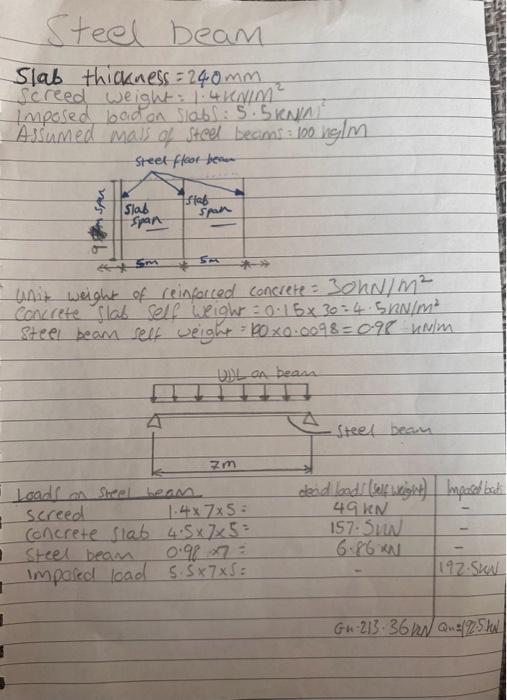 Steel beam
Slab thickness = 240mm
Screed weight: 1.4KN/M²
Imposed load on slabs: 5.5KN/M²
Assumed mass of steel beams: 100 kg/m
Steel floor beam
span
Slab span
Slab span
5m 5m
Unit weight of reinforced concrete = 30kN/m²
Concrete slab self weight = 0.15 x 30 = 4.5KN/m²
Steel beam self weight = 100 x 0.0098 = 0.98 kN/m
UDL on beam
Steel beam
7m
Loads on steel beam dead loads (self weight) Imposed
screed 1.4 x 7 x 5 = 49 KN -
concrete slab 4.5 x 7 x 5 = 157.5KN -
Steel beam 0.98 x 7 = 6.86 KN -
Imposed load 5.5 x 7 x 5 = - 192.5KN
213.36 kN 192.5kN